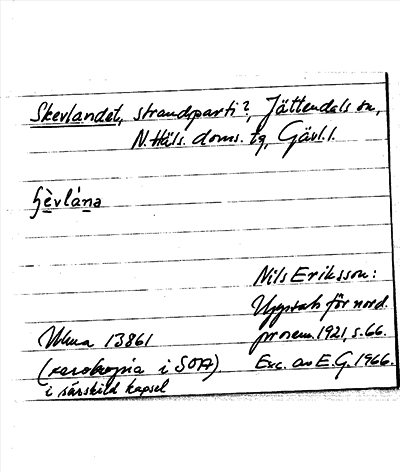 Skevlandet, strandparti?, Jättendals sn,
N. Häls. doms. tg, Gävl. l.
ʃèvlána
Nils Eriksson:
Uppsats för nord.
prosem. 1921, s. 66.
Ulma 13861
(xerokopia i SOA) Exc. av E.G. 1966.
i särskild kapsel